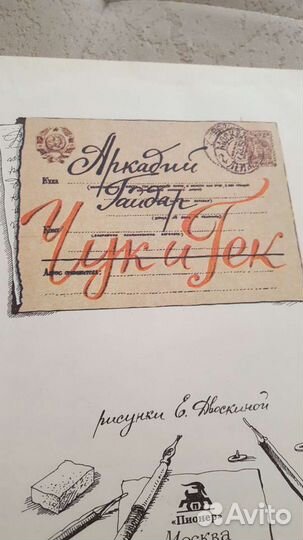 Аркадий
Куда
Гайдар
Кому
Чук и Гек
Адрес отправителя:
МОСКВА
рисунки Е. Двоскиной
«Пионер»
Москва
Avito